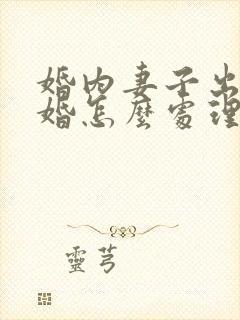 婚内妻子出
婚怎麼處理
靈芎